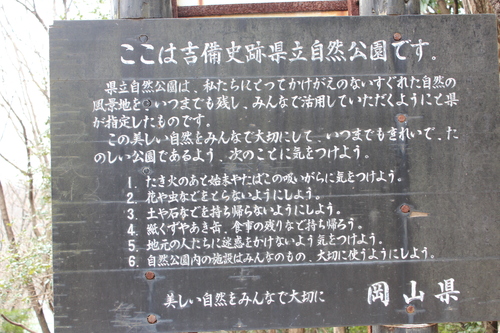 ここは吉備史跡県立自然公園です。
県立自然公園は、私たちにとってかけがえのないすぐれた自然の
風景地を、いつまでも残し、みんなで活用していただくようにと県
が指定したものです。
この美しい自然をみんなで大切にして、いつまでもきれいで、た
のしい公園であるよう、次のことに気をつけよう。
1. たき火のあと始末やたばこの吸いがらに気をつけよう。
2. 花や虫などをとらないようにしよう。
3. 土や石などを持ち帰らないようにしよう。
4. 紙くずやあき缶、食事の残りなど持ち帰ろう。
5. 地元の人たちに迷惑をかけないよう気をつけよう。
6. 自然公園内の施設はみんなのもの、大切に使うようにしよう。
美しい自然をみんなで大切に 岡山県